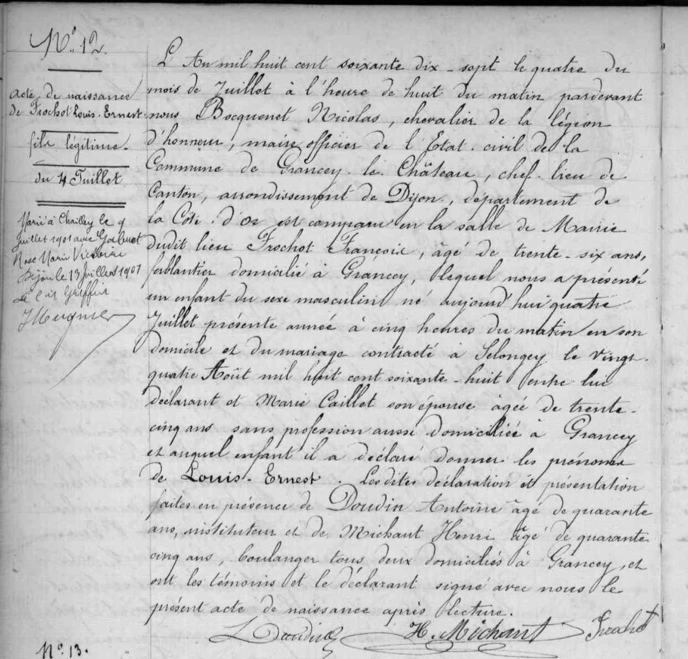 N° 12.
acte de naissance
de Frochot Louis-Ernest
fils légitime.
du 4 Juillet
Marié à Chailley le 9
juillet 1901 avec
Rose Marie Victorine
Dijon le 13 juillet 1901
Le Greffier
L'An mil huit cent soixante dix-sept le quatre du
mois de Juillet à l'heure de huit du matin pardevant
nous Bocquenet Nicolas, chevalier de la légion
d'honneur, maire officier de l'Etat civil de la
Commune de Grancey-le-Château, chef-lieu de
Canton, arrondissement de Dijon, département de
la Côte-d'Or est comparu en la salle de Mairie
dudit lieu Frochot François, âgé de trente-six ans,
ferblantier domicilié à Grancey, lequel nous a présenté
un enfant du sexe masculin né aujourd'hui quatre
Juillet présente année à cinq heures du matin en son
domicile et du mariage contracté à Selongey le vingt-
quatre Août mil huit cent soixante-huit entre lui
déclarant et Marie Caillet son épouse âgée de trente-
cinq ans sans profession aussi domiciliée à Grancey
et auquel enfant il a déclaré donner les prénoms
de Louis-Ernest. Les dites déclaration et présentation
faites en présence de Doudin Antoine âgé de quarante
ans, instituteur et de Michaut Henri âgé de quarante-
cinq ans, boulanger tous deux domiciliés à Grancey, et
ont les témoins et le déclarant signé avec nous le
présent acte de naissance après lecture.
Doudin H. Michaut Frochot
N° 13.